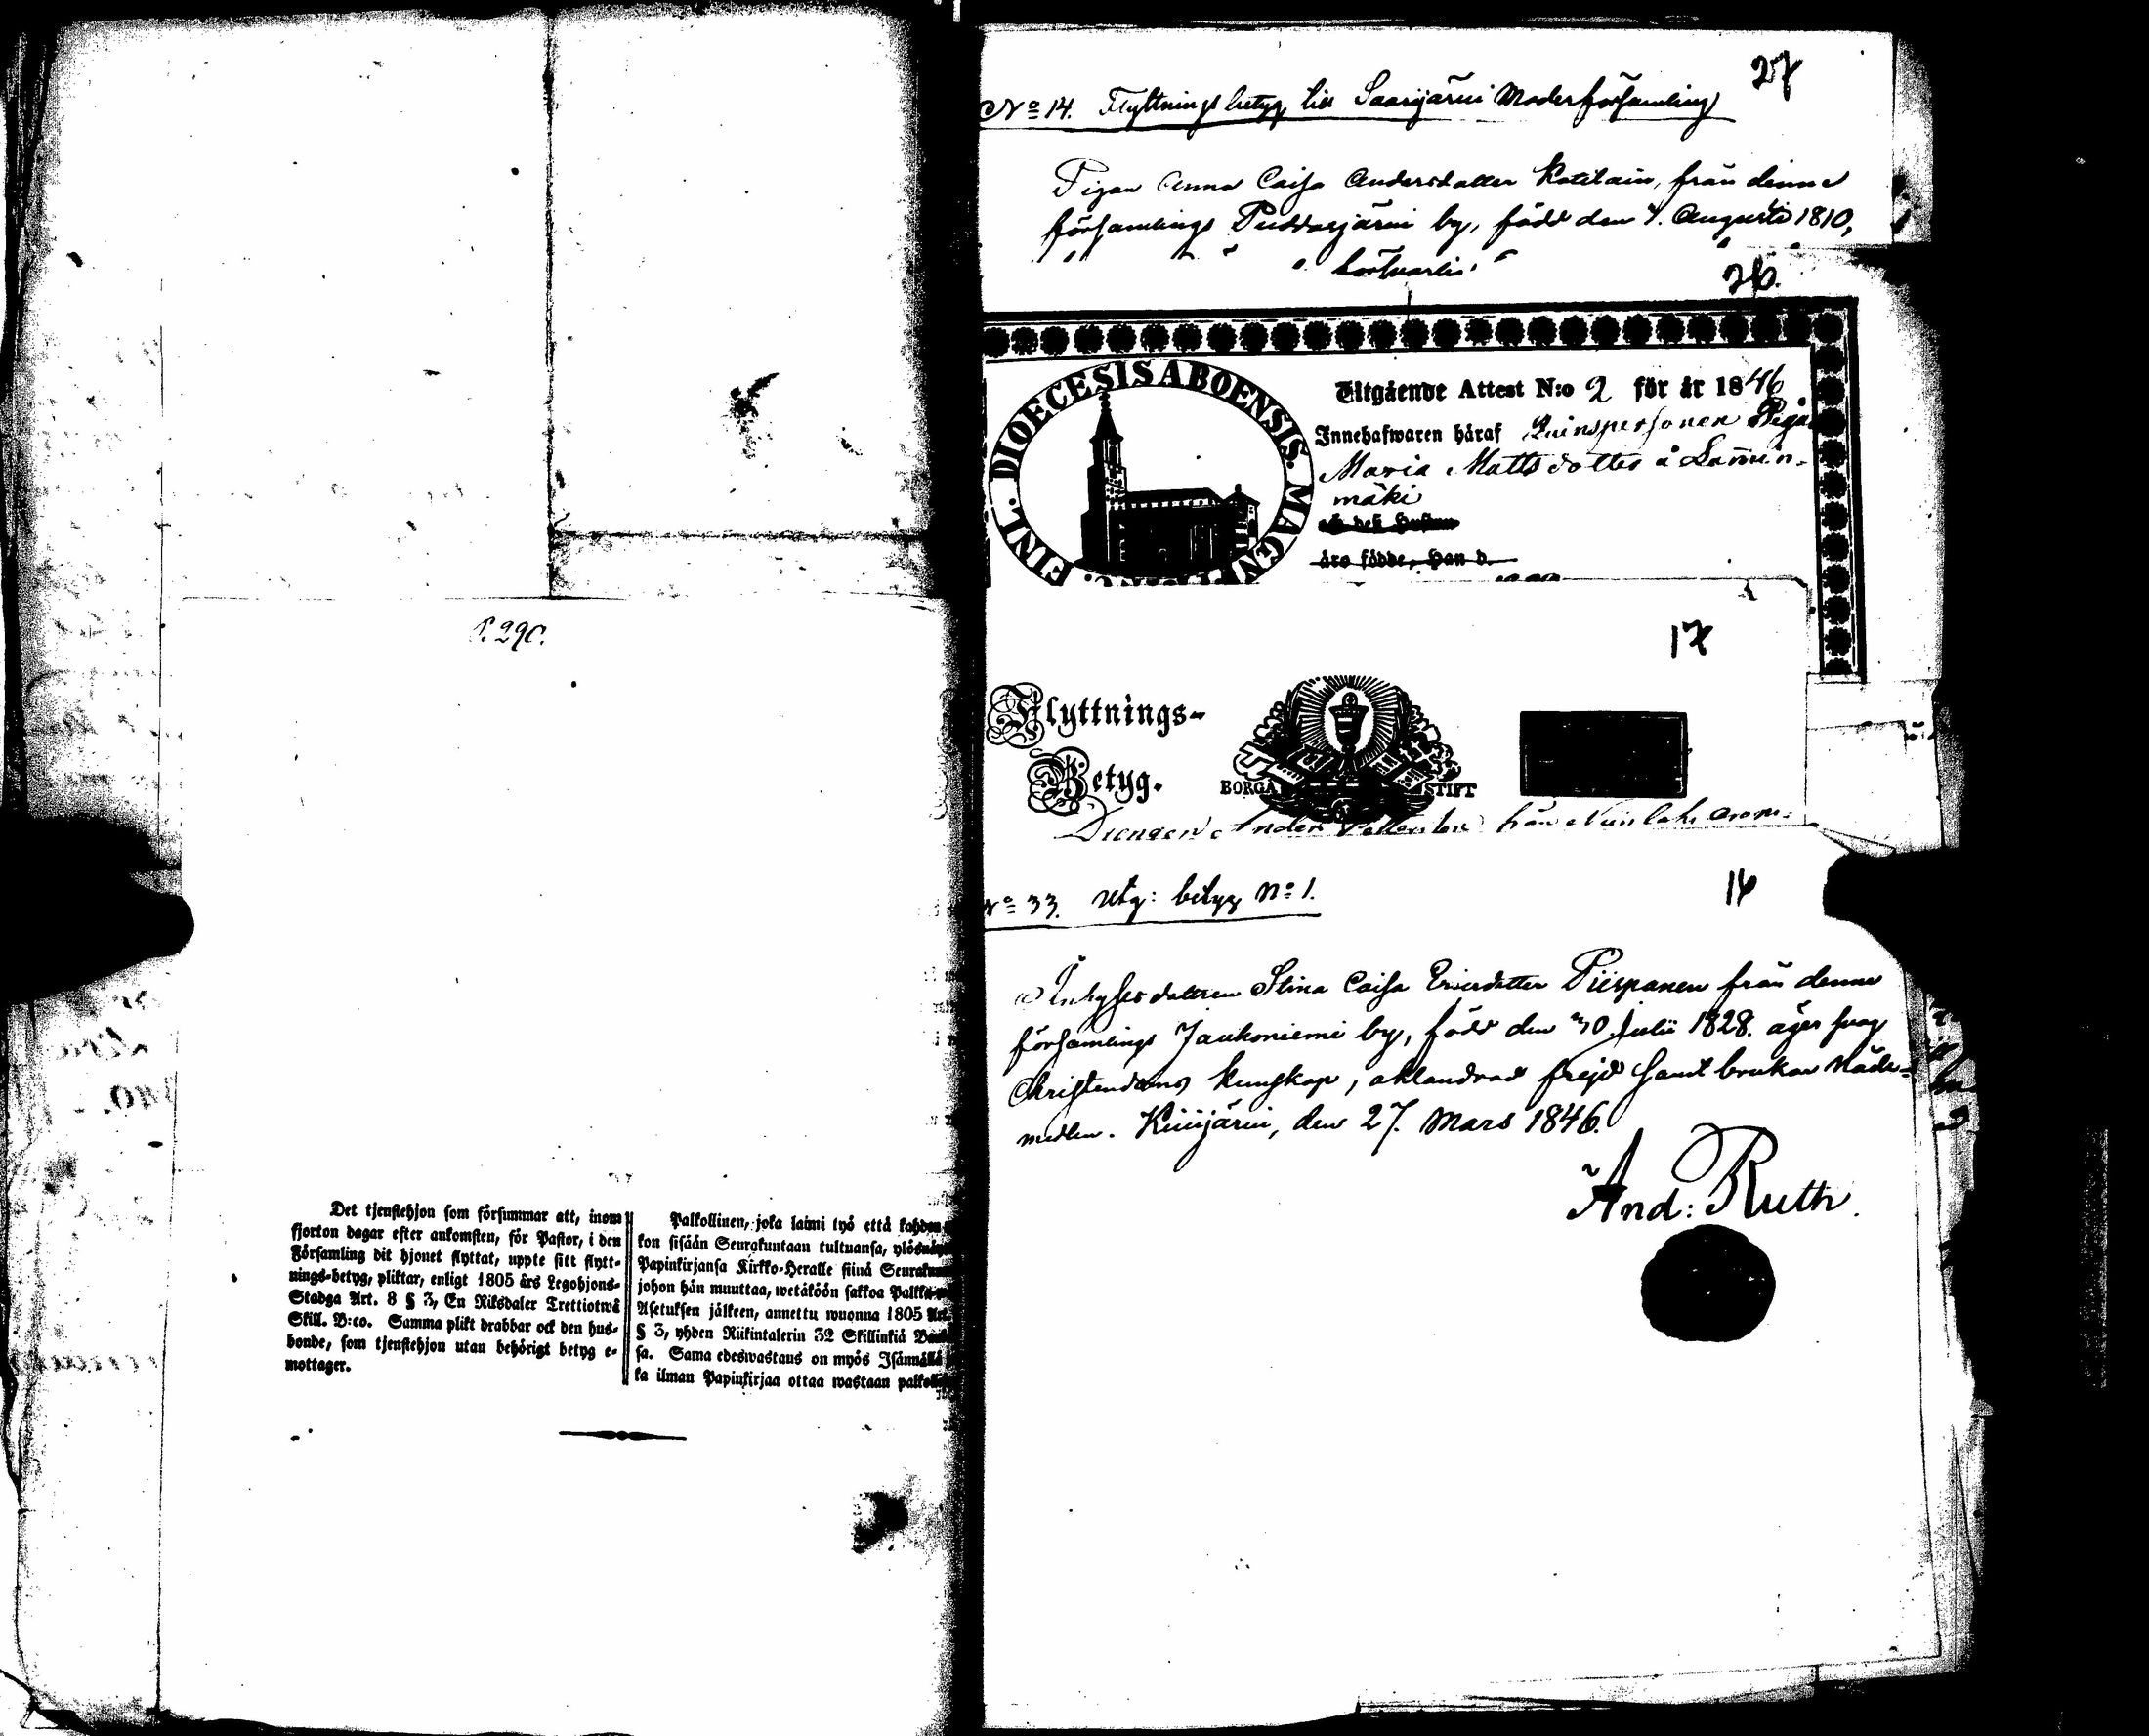 P. 290.
Det tjenstehjon som försummar att, inom
fjorton dagar efter ankomsten, för Pastor, i den
Församling dit hjonet flyttat, uppte sitt flytt-
nings-betyg, pliktar, enligt 1805 års Legohjons-
Stadga Art. 8 § 3, En Riksdaler Trettiotwå
Skill. B:co. Samma plikt drabbar ock den hus-
bonde, som tjenstehjon utan behörigt betyg e-
mottager.
Palkollinen, joka laimi lyö että
kon sisään Seurakuntaan tultuansa,
Papinkirjansa Kirkko-Heralle siinä
johon hän muuttaa, wetäköön sakkoa
Asetuksen jälkeen, annettu wuonna 1805 Art.
§ 3, yhden Riikintalerin 32 Skillinkiä
sa. Sama edeswastaus on myös Isännällä
ka ilman Papinkirjaa ottaa wastaan
27
No 14. Flyttnings betyg till Saarijärvi Moderförsamling
Pigan Anna Caisa Andersdotter från denna
församlings by, född den 7. Augusti 1810,
26.
FINL. DIOECESIS ABOENSIS. MAGN.
Utgående Attest N:o 2 för år 1846
Innehafwaren häraf Qvinspersonen Pigan
Maria Mattsdotter å
mäki
äro födde, Han d.
17
Flyttnings-
Betyg.
BORGÅ STIFT
Drengen Anders från
16
No 33. Utg: betyg No 1.
Inhyses dottren Stina Caisa Ericsdotter Piispanen från denna
församlings Jaukoniemi by, född den 30 Julii 1828. äger svag
Christendoms kunskap, oklandrad frejd samt brukar Nåde-
medlen. Kivijärvi, den 27. Mars 1846.
And: Ruth.